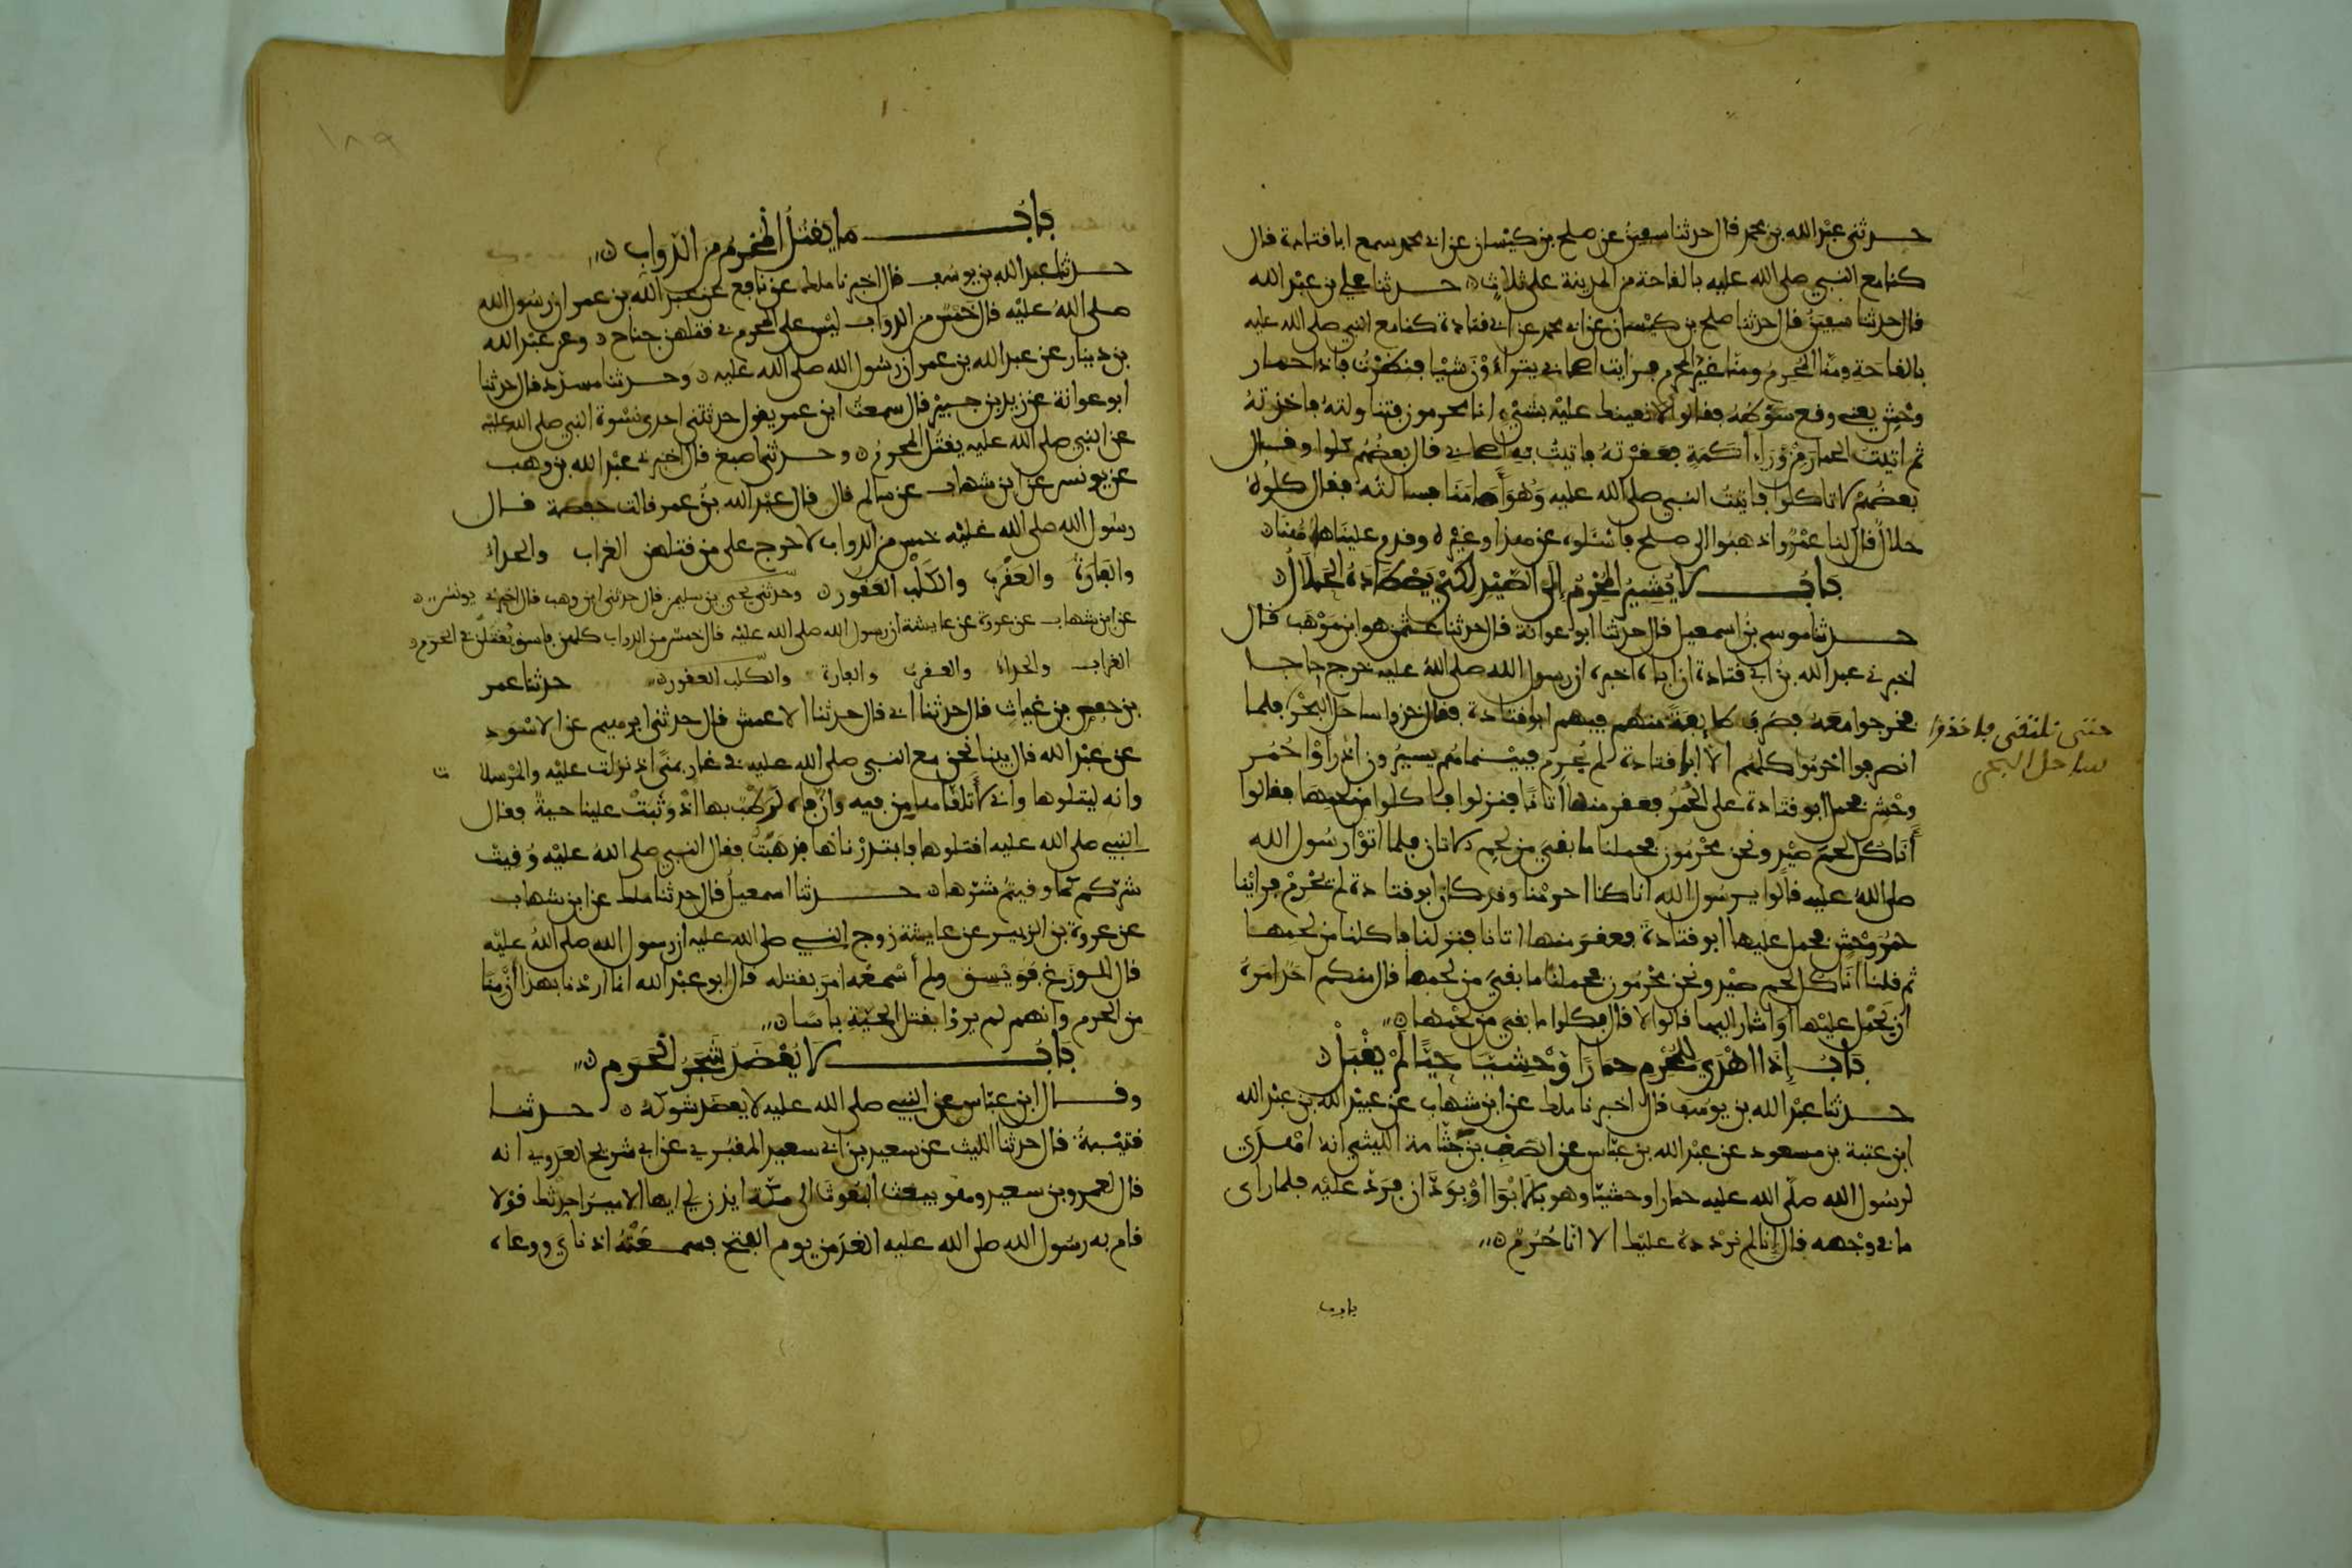 حدثني عبد الله بن محمد قال حدثنا سفين عن صلح بن كيسان عن ابي محمد سمع ابا قتادة قال
كنا مع النبي صلى الله عليه بالقاحة من المدينة على ثلاث حدثنا علي بن عبد الله
قال حدثنا سفين قال حدثنا صلح بن كيسان عن ابي محمد عن ابي قتادة كنا مع النبي صلى الله عليه
بالقاحة ومنا المحرم ومنا غير المحرم فرايت اصحابي يتراءون شيا فنظرت فاذا حمار
وحش يعني وقع سوطه فقالوا لا نعينك عليه بشيء انا محرمون فتناولته فاخذته
ثم اتيت الحمار من وراء اكمة فعقرته فاتيت به اصحابي قال بعضهم كلوا وقال
بعضهم لا تاكلوا فاتيت النبي صلى الله عليه وهو امامنا فسالته فقال كلوه
حلال قال لنا عمرو اذهبوا الى صلح فاسئلوه عن هذا وغيره وقدم علينا هاهنا
باب لا يشير المحرم الى الصيد لكي يصطاده الحلال
حدثنا موسى بن اسمعيل قال حدثنا ابو عوانة قال حدثنا عثمن هو ابن موهب قال
اخبرني عبد الله بن ابي قتادة ان اباه اخبره ان رسول الله صلى الله عليه خرج حاجا
فخرجوا معه فصرف طايفة منهم فيهم ابو قتادة فقال خذوا ساحل البحر فلما
حتى نلتقي فاخذوا
ساحل البحر
انصرفوا احرموا كلهم الا ابا قتادة لم يحرم فبينما هم يسيرون اذ راوا حمر
وحش فحمل ابو قتادة على الحمر فعقر منها اتانا فنزلوا فاكلوا من لحمها فقالوا
اناكل لحم صيد ونحن محرمون فحملنا ما بقي من لحم الاتان فلما اتوا رسول الله
صلى الله عليه قالوا يرسول الله انا كنا احرمنا وقد كان ابو قتادة لم يحرم فراينا
حمر وحش فحمل عليها ابو قتادة فعقر منها اتانا فنزلنا فاكلنا من لحمها
ثم قلنا اناكل لحم صيد ونحن محرمون فحملنا ما بقي من لحمها قال منكم احد امره
ان يحمل عليها او اشار اليها قالوا لا قال فكلوا ما بقي من لحمها
باب اذا اهدي للمحرم حمارا وحشيا حيا لم يقبل
حدثنا عبد الله بن يوسف قال اخبرنا ملك عن ابن شهاب عن عبيد الله بن عبد الله
ابن عتبة بن مسعود عن عبد الله بن عباس عن الصعب بن جثامة الليثي انه اهدى
لرسول الله صلى الله عليه حمارا وحشيا وهو بالابوا او بودان فرد عليه فلما راى
ما في وجهه قال انا لم نردده عليك الا انا حرم
باب ما
١٨٩
باب ما يقتل المحرم من الدواب
حدثنا عبد الله بن يوسف قال اخبرنا ملك عن نافع عن عبد الله بن عمر ان رسول الله
صلى الله عليه قال خمس من الدواب ليس على المحرم في قتلهن جناح وعن عبد الله
بن دينار عن عبد الله بن عمر ان رسول الله صلى الله عليه وحدثنا مسدد قال حدثنا
ابو عوانة عن زيد بن جبير قال سمعت ابن عمر يقول حدثتني احدى نسوة النبي صلى الله عليه
عن النبي صلى الله عليه يقتل المحرم وحدثنا اصبغ قال اخبرني عبد الله بن وهب
عن يونس عن ابن شهاب عن سالم قال قال عبد الله بن عمر قالت حفصة قال
رسول الله صلى الله عليه خمس من الدواب لا حرج على من قتلهن الغراب والحداء
والفارة والعقرب والكلب العقور وحدثني يحيى بن سليمن قال حدثني ابن وهب قال اخبرني يونس
عن ابن شهاب عن عروة عن عايشة ان رسول الله صلى الله عليه قال خمس من الدواب كلهن فاسق يقتلن في الحرم
الغراب والحداء والعقرب والفارة والكلب العقور حدثنا عمر
بن حفص بن غياث قال حدثنا ابي قال حدثنا الاعمش قال حدثني ابرهيم عن الاسود
عن عبد الله قال بينا نحن مع النبي صلى الله عليه في غار بمنى اذ نزلت عليه والمرسلات
وانه ليتلوها واني لاتلقاها من فيه وان فاه لرطب بها اذ وثبت علينا حية فقال
النبي صلى الله عليه اقتلوها فابتدرناها فذهبت فقال النبي صلى الله عليه وقيت
شركم كما وقيتم شرها حدثنا اسمعيل قال حدثنا ملك عن ابن شهاب
عن عروة بن الزبير عن عايشة زوج النبي صلى الله عليه ان رسول الله صلى الله عليه
قال للوزغ فويسق ولم اسمعه امر بقتله قال ابو عبد الله انما اردنا بهذا ان منا
من الحرم وانهم لم يروا بقتل الحية باسا
باب لا يعضد شجر الحرم
وقال ابن عباس عن النبي صلى الله عليه لا يعضد شوكه حدثنا
قتيبة قال حدثنا الليث عن سعيد بن ابي سعيد المقبري عن ابي شريح العدوي انه
قال لعمرو بن سعيد وهو يبعث البعوث الى مكة ايذن لي ايها الامير احدثك قولا
قام به رسول الله صلى الله عليه الغد من يوم الفتح فسمعته اذناي ووعاه